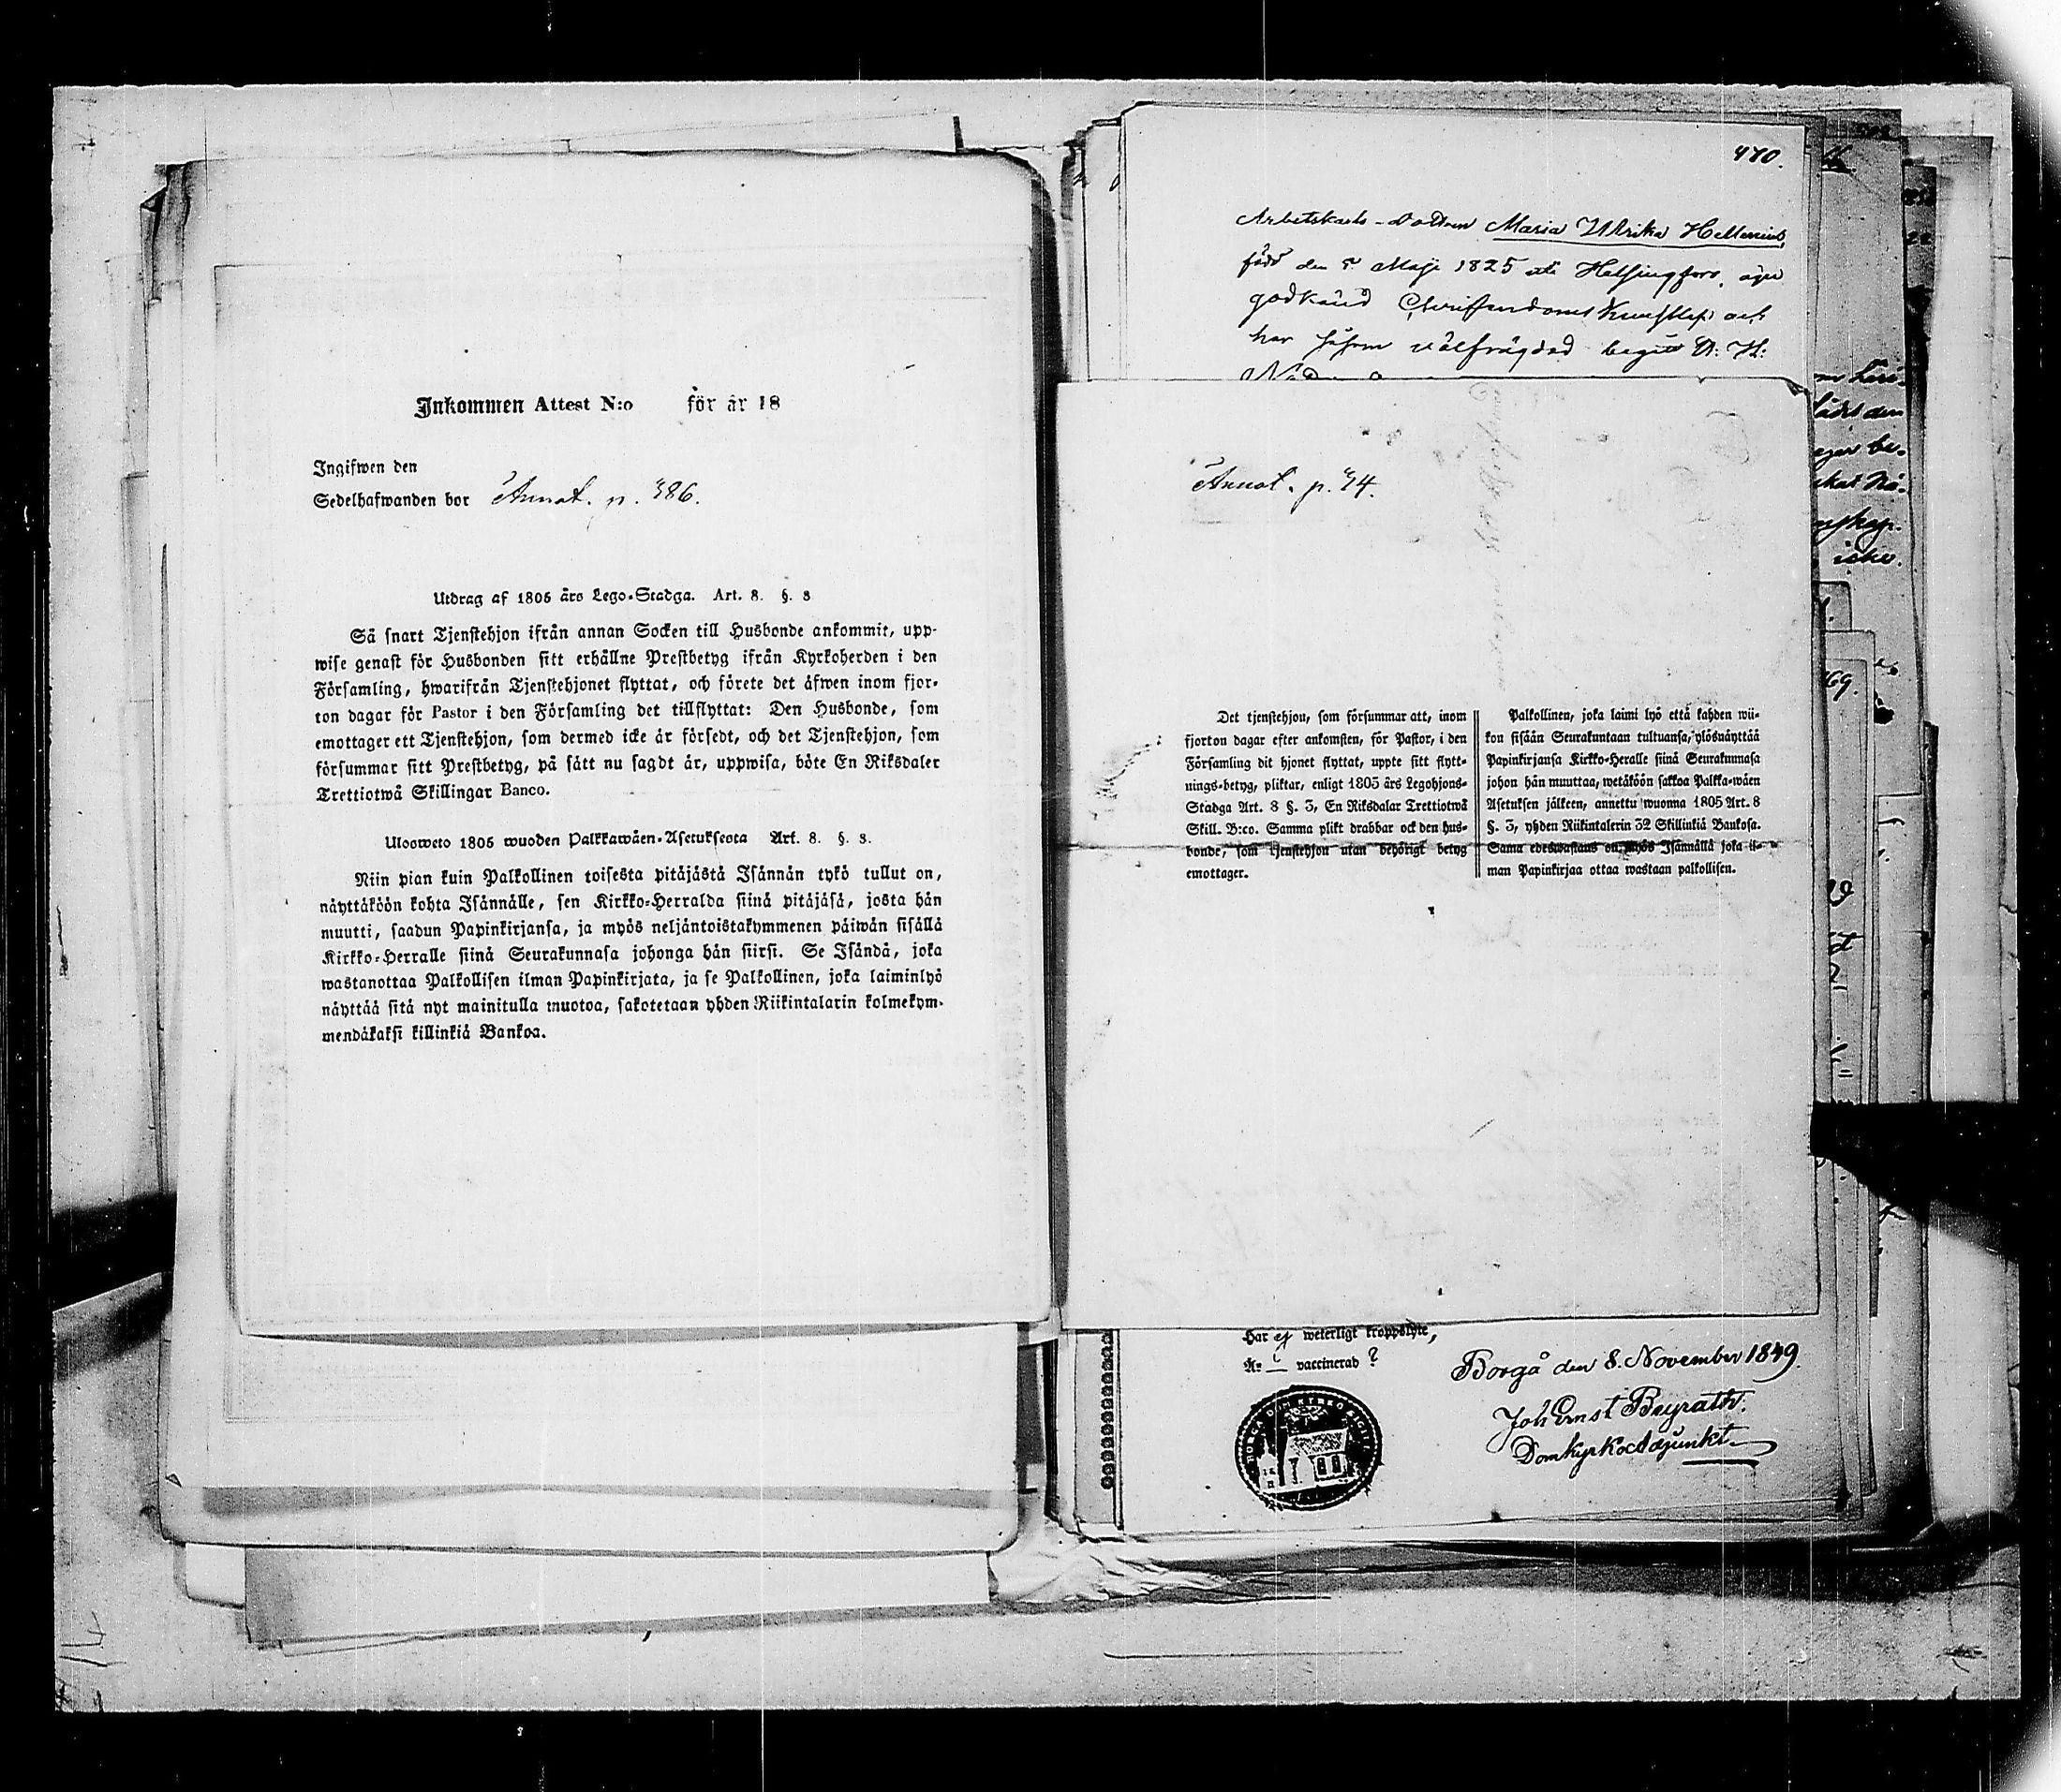 Inkommen Attest N:o för år 18
Ingifwen den
Sedelhafwanden bor Annot. p. 386.
Utdrag af 1805 års Lego-Stadga. Art. 8. §. 3
Så snart Tjenstehjon ifrån annan Socken till Husbonde ankommit, upp-
wise genast för Husbonden sitt erhållne Prestbetyg ifrån Kyrkoherden i den
Församling, hwarifrån Tjenstehjonet flyttat, och förete det äfwen inom fjor-
ton dagar för Pastor i den Församling det tillflyttat: Den Husbonde, som
emottager ett Tjenstehjon, som dermed icke är försedt, och det Tjenstehjon, som
försummar sitt Prestbetyg, på sätt nu sagdt är, uppwisa, böte En Riksdaler
Trettiotwå Skillingar Banco.
Ulosweto 1805 wuoden Palkkawäen-Asetuksesta Art. 8. §. 3.
Niin pian kuin Palkollinen toisesta pitäjästä Isännän tykö tullut on,
näyttäköön kohta Isännälle, sen Kirkko-Herralda siinä pitäjäsä, josta hän
muutti, saadun Papinkirjansa, ja myös neljäntoistakymmenen päiwän sisällä
Kirkko-Herralle siinä Seurakunnasa johonga hän siirsi. Se Isändä, joka
wastanottaa Palkollisen ilman Papinkirjata, ja se Palkollinen, joka laiminlyö
näyttää sitä nyt mainitulla muotoa, sakotetaan yhden Riikintalarin kolmekym-
mendäkaksi killinkiä Bankoa.
470.
Arbetskarls-Dottren Maria Ulrika Hellenius,
född den 5 Maji 1825 uti Helsingfors, äger
godkänd Christendoms Kunskap och
har såsom välfrägdad begått D: H:
Annot. p. 44.
Det tjenstehjon, som försummar att, inom
fjorton dagar efter ankomsten, för Pastor, i den
Församling dit hjonet flyttat, uppte sitt flytt-
nings-betyg, pliktar, enligt 1805 års Legohjons-
Stadga Art. 8 §. 3, En Riksdalar Trettiotwå
Skill. B:co. Samma plikt drabbar ock den hus-
bonde, som tjenstehjon utan behörigt betyg
emottager.
Palkollinen, joka laimi lyö että kahden wii-
kon sisään Seurakuntaan tultuansa, ylösnäyttää
Papinkirjansa Kirkko-Heralle siinä Seurakunnasa
johon hän muuttaa, wetäköön sakkoa Palkka-wäen
Asetuksen jälkeen, annettu wuonna 1805 Art. 8
§. 3, yhden Riikintalerin 32 Skillinkiä Bankosa.
Sama edeswastaus on myös Isännällä joka il-
man Papinkirjaa ottaa wastaan palkollisen.
Har ej weterligt kroppslyte,
Är vaccinerad?
Borgå den 8. November 1849.
Joh Ernst Beyrath.
DomkyrkoAdjunkt.